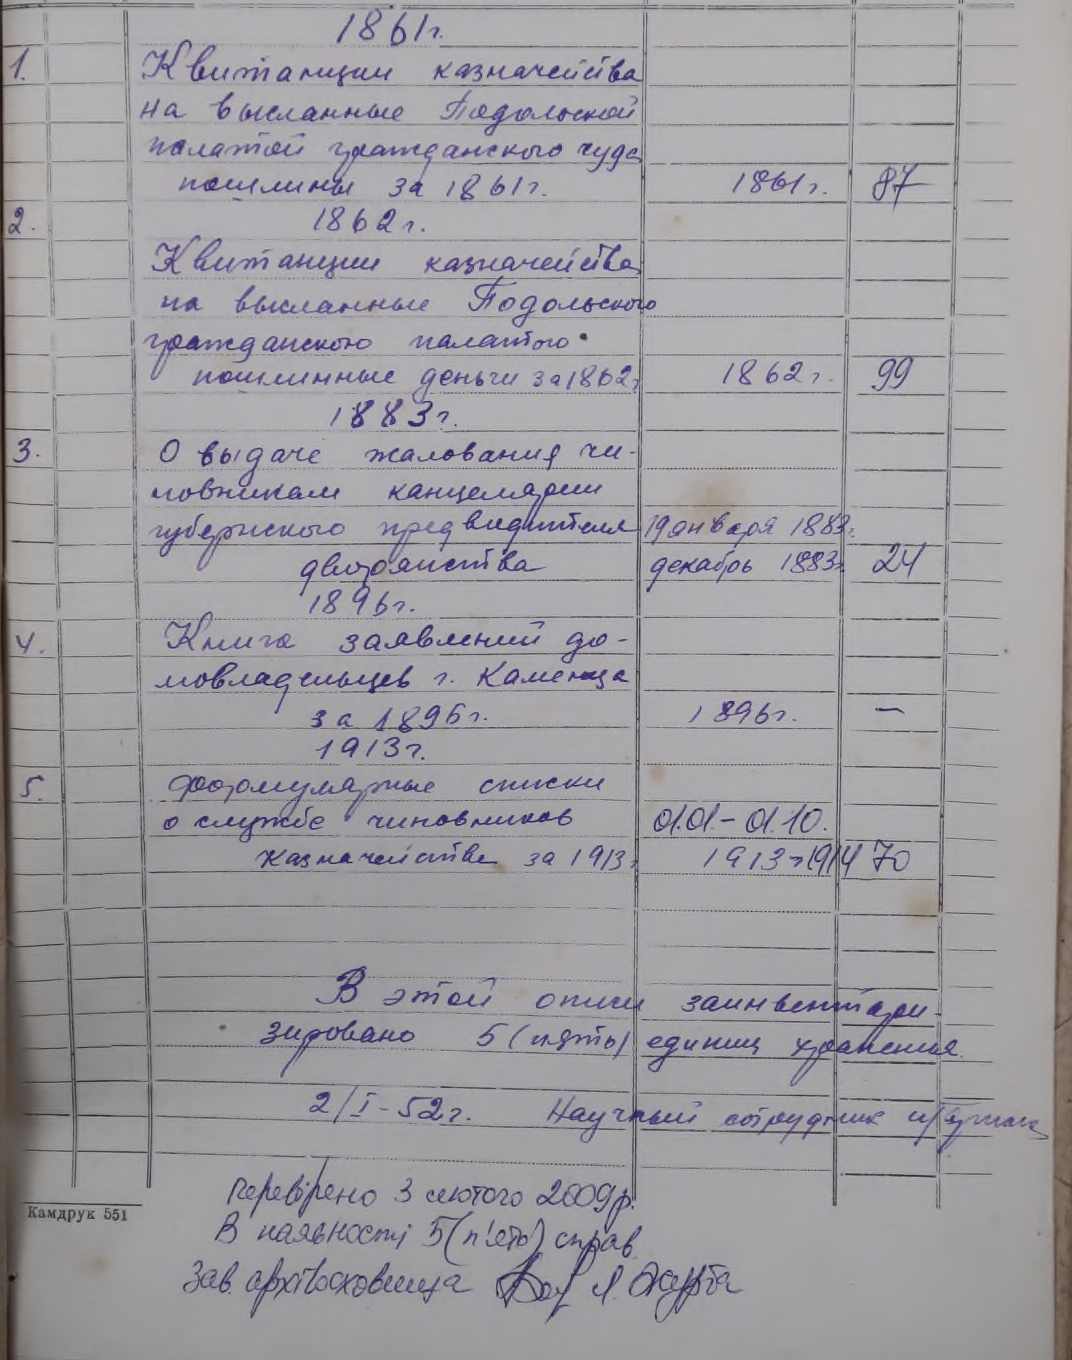 1861г.
1. Квитанции казначейства
на высланные Подольской
палатой гражданского суда
пошлины за 1861г. 1861г. 87
2. 1862г.
Квитанции казначейства
на высланные Подольского
гражданского палатого
пошлинные деньги за 1862г. 1862г. 99
1883г.
3. О выдаче жалования чи-
новникам канцелярии
губернского предводителя 19 января 1883г.
дворянства декабрь 1883г. 24
1896г.
4. Книга заявлений до-
мовладельцев г. Каменца
за 1896г. 1896г. —
1913г.
5. Формулярные списки
о службе чиновников 01.01.-01.10.
казначейства за 1913г. 1913г-1914 70
В этой описи заинвентари-
зировано 5 (пять) единиц хранения.
2/I-52г. Научный сотрудник
Камдрук 551
Перевірено 3 лютого 2009р.
В наявності 5 (п'ять) справ.
Зав. архівосховища